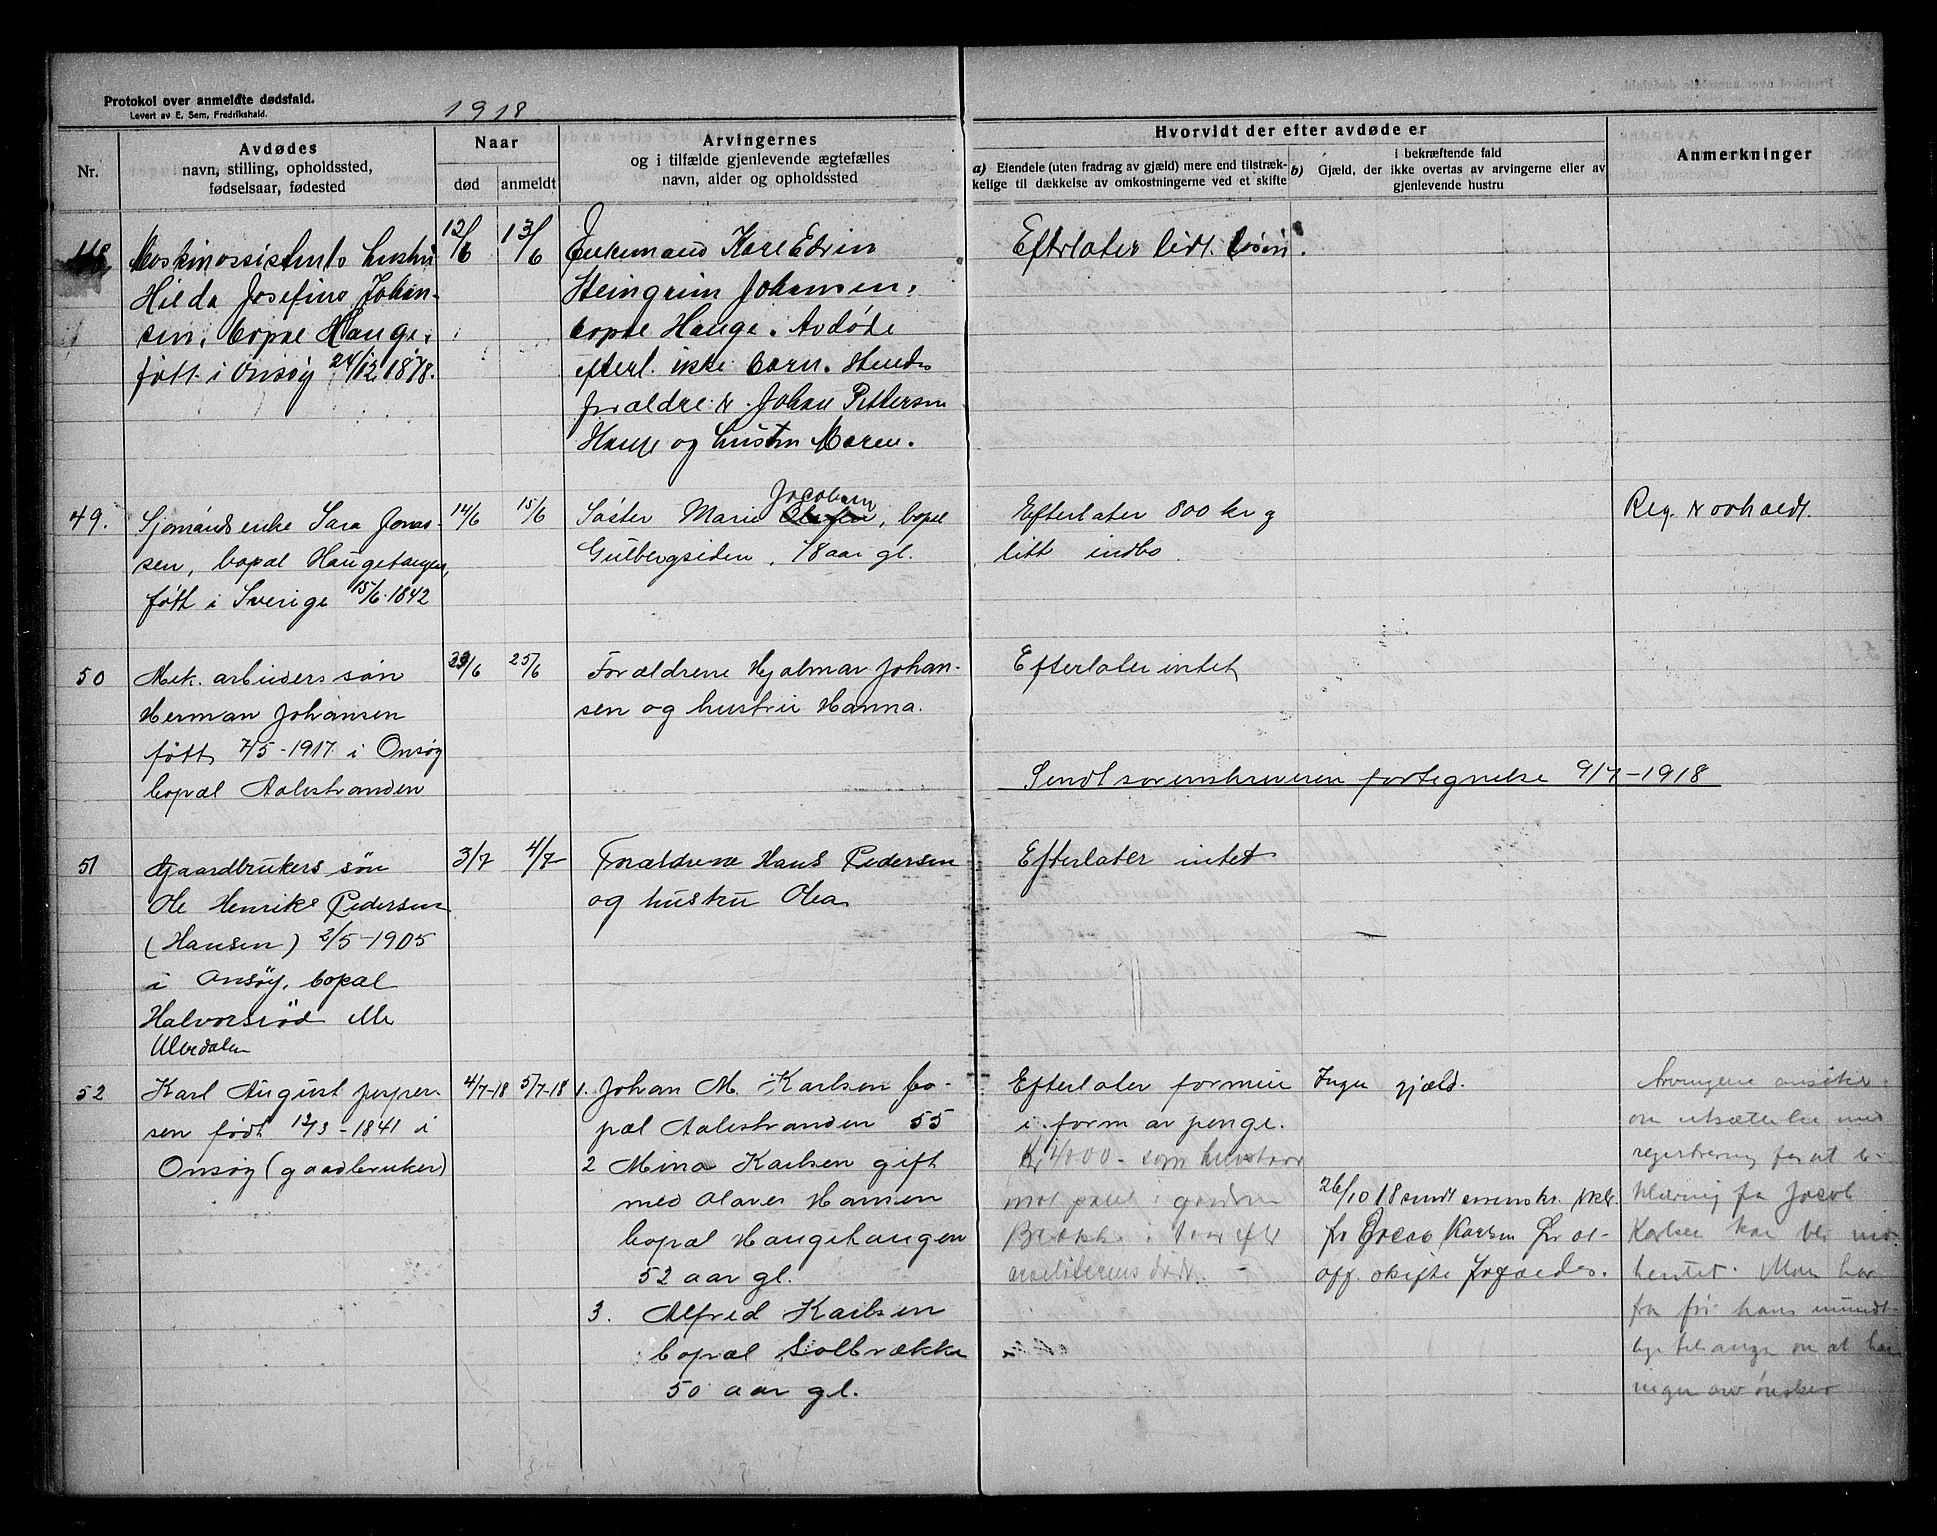 Protokol over anmeldte dødsfald.
Levert av E. Sem, Fredrikshald.
1918
Nr.
Avdødes
navn, stilling, opholdssted,
fødselsaar, fødested
Naar
død
anmeldt
Arvingernes
og i tilfælde gjenlevende ægtefælles
navn, alder og opholdssted
Hvorvidt der efter avdøde er
a) Eiendele (uten fradrag av gjæld) mere end tilstræk-
kelige til dækkelse av omkostningerne ved et skifte
i bekræftende fald
b) Gjæld, der ikke overtas av arvingerne eller av
gjenlevende hustru
Anmerkninger
48
Maskinassistents hustru
Hilda Josefine Johan-
sen, bopæl Hauge,
født i Onsøy 24/12 1878.
12/6
13/6
Enkemand Karl Edvin
Steingrim Johansen,
bopæl Hauge. Avdøde
efterl. ikke barn. Hendes
forældre er Johan Pettersen
Hauge og hustru Maren.
Efterlater lidt løsøre.
49.
Sjømands enke Sara Jonas-
sen, bopæl Haugetangen,
født i Sverige 15/6 1842
14/6
15/6
Jacobsen
Søster Marie Olafsen, bopæl
Gulbergsiden, 78 aar gl.
Efterlater 800 kr og
litt indbo.
Reg. er avholdt.
50
Mek. arbeiders søn
Herman Johansen
født 7/5-1917 i Onsøy
bopæl Aalestranden
23/6
25/6
Forældrene Hjalmar Johan-
sen og hustru Hanna.
Efterlater intet
Sendt sorenskriveren fortegnelse 9/7-1918
51
Gaardbrukers søn
Ole Henriks Pedersen
(Hansen) 2/5-1905
i Onsøy, bopæl
Halvorsrød eller
Ulverdalen
3/7
4/7
Forældrene Hans Pedersen
og hustru Olea
Efterlater intet
52
Karl August Jesper-
sen født 12/3-1841 i
Onsøy (gaardbruker)
4/7-18
5/7-18
1. Johan M. Karlsen bo-
pæl Aalestranden 55
2 Mina Karlsen gift
med Olaves Hansen
bopæl Haugetangen
52 aar gl.
3. Alfred Karlsen
bopæl Solbrække
50 aar gl.
Efterlater formue
i form av penge.
Kr 4000 - som
mot pant i gaarden
Brække i
arveladerens død.
Ingen gjæld.
26/10 18 sendt sorenskr.
fra Jacob Karlsen for at
off. skifte foretages.
Arvingene ansøker
om utsættelse med
registrering for at e-
klæring fra Jacob
Karlsen kan bli ind-
hentet. Man har
fra før hans mundt-
lige om at han
ingen arv ønsker